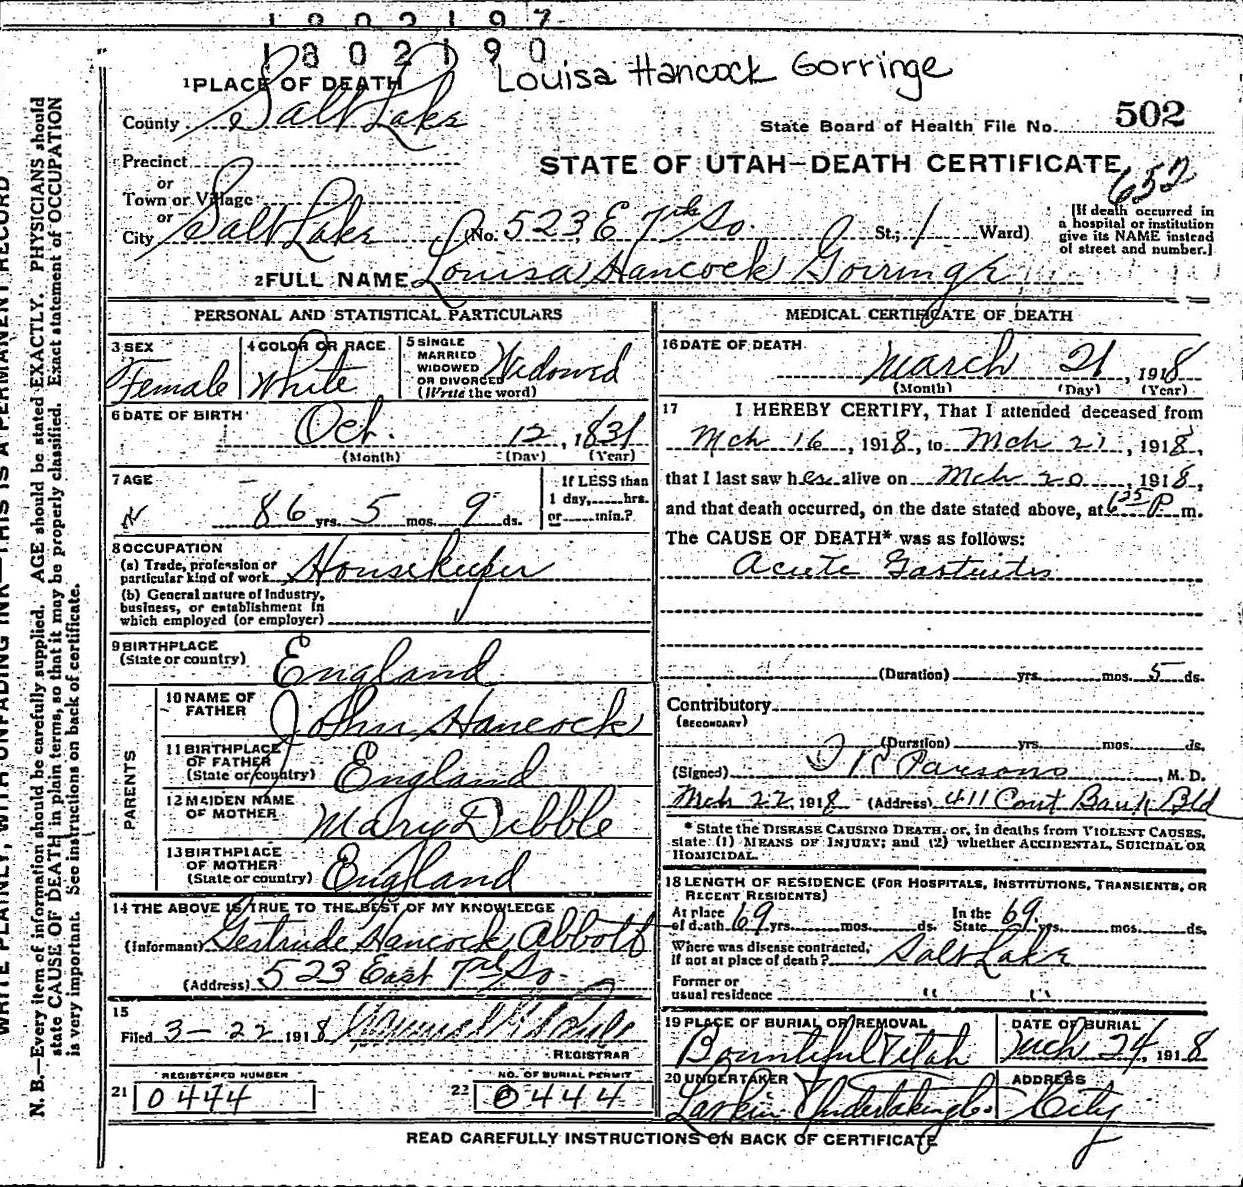 1802197
1802190
Louisa Hancock Gorringe
1 PLACE OF DEATH
County Salt Lake
State Board of Health File No. 502
Precinct
STATE OF UTAH—DEATH CERTIFICATE
652
or
Town or Village
or
City Salt Lake (No. 523 E 7th So. St.; 1 Ward)
[If death occurred in
a hospital or institution
give its NAME instead
of street and number.]
2 FULL NAME Louisa Hancock Gorringe
PERSONAL AND STATISTICAL PARTICULARS
3 SEX
Female
4 COLOR OR RACE
White
5 SINGLE
MARRIED
WIDOWED
OR DIVORCED
(Write the word)
Widowed
6 DATE OF BIRTH
Oct. 12, 1831
(Month) (Day) (Year)
7 AGE
86 yrs. 5 mos. 9 ds.
If LESS than
1 day, hrs.
or min.?
8 OCCUPATION
(a) Trade, profession or
particular kind of work Housekeeper
(b) General nature of Industry,
business, or establishment in
which employed (or employer)
9 BIRTHPLACE
(State or country) England
PARENTS
10 NAME OF
FATHER John Hancock
11 BIRTHPLACE
OF FATHER
(State or country) England
12 MAIDEN NAME
OF MOTHER Mary Dibble
13 BIRTHPLACE
OF MOTHER
(State or country) England
14 THE ABOVE IS TRUE TO THE BEST OF MY KNOWLEDGE
(Informant) Gertrude Hancock Abbott
(Address) 523 East 7th So.
15
Filed 3-22 1918
REGISTRAR
REGISTERED NUMBER
21 0444
NO. OF BURIAL PERMIT
22 0444
MEDICAL CERTIFICATE OF DEATH
16 DATE OF DEATH
March 21, 1918
(Month) (Day) (Year)
17 I HEREBY CERTIFY, That I attended deceased from
Mch 16, 1918, to Mch 21, 1918,
that I last saw her alive on Mch 20, 1918,
and that death occurred, on the date stated above, at 6 25 P m.
The CAUSE OF DEATH* was as follows:
Acute Gastritis
(Duration) yrs. mos. 5 ds.
Contributory
(SECONDARY)
(Duration) yrs. mos. ds.
(Signed) Parsons, M. D.
Mch 22, 1918 (Address) 411 Cont Bank Bld
* State the DISEASE CAUSING DEATH, or, in deaths from VIOLENT CAUSES,
state (1) MEANS OF INJURY; and (2) whether ACCIDENTAL, SUICIDAL OR
HOMICIDAL.
18 LENGTH OF RESIDENCE (FOR HOSPITALS, INSTITUTIONS, TRANSIENTS, OR
RECENT RESIDENTS)
At place
of death 69 yrs. mos. ds.
In the
State 69 yrs. mos. ds.
Where was disease contracted,
if not at place of death? Salt Lake
Former or
usual residence " "
19 PLACE OF BURIAL OR REMOVAL
Bountiful Utah
DATE OF BURIAL
Mch 24, 1918
20 UNDERTAKER
Larkin Undertaking Co.
ADDRESS
City
READ CAREFULLY INSTRUCTIONS ON BACK OF CERTIFICATE
WRITE PLAINLY, WITH UNFADING INK—THIS IS A PERMANENT RECORD
N. B.—Every item of information should be carefully supplied. AGE should be stated EXACTLY. PHYSICIANS should
state CAUSE OF DEATH in plain terms, so that it may be properly classified. Exact statement of OCCUPATION
is very important. See instructions on back of certificate.